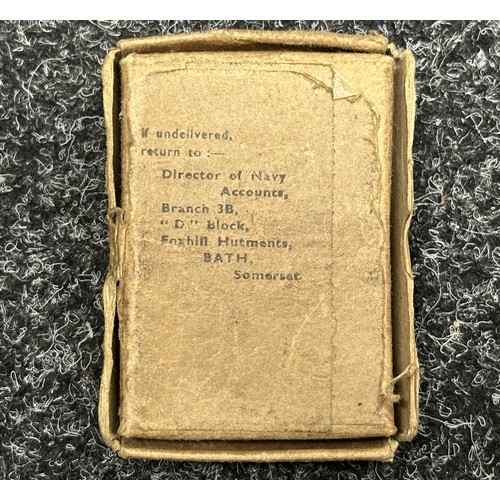 If undelivered,
return to :—
Director of Navy
Accounts,
Branch 3B,
"D" Block,
Foxhill Hutments,
BATH,
Somerset.